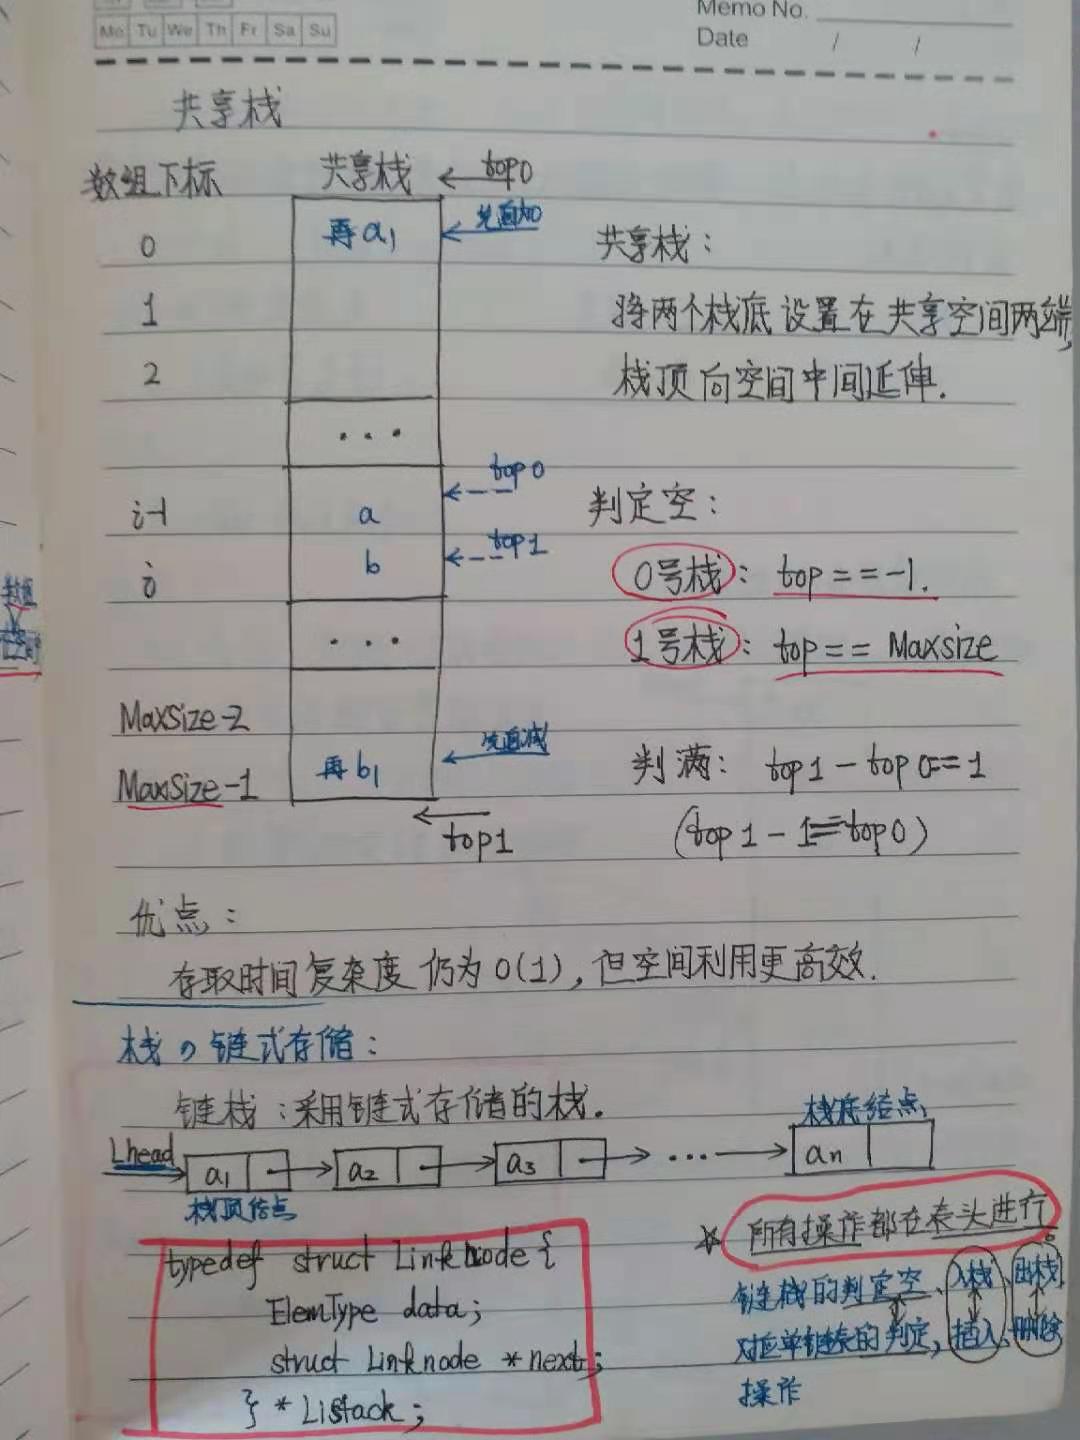 Memo No.
Mo Tu We Th Fr Sa Su
Date / /
共享栈
数组下标 共享栈 top0
0 再a1 先自加
1
2
...
i-1 a top0
i b top1
...
MaxSize-2
MaxSize-1 再b1 先自减
top1
共享栈:
将两个栈底设置在共享空间两端,
栈顶向空间中间延伸.
判定空:
0号栈: top==-1.
1号栈: top== Maxsize
判满: top1-top0==1
(top1-1==top0)
优点:
存取时间复杂度仍为O(1),但空间利用更高效.
栈の链式存储:
链栈:采用链式存储的栈.
栈底结点
Lhead a1 a2 a3 ... an
栈顶结点
typedef struct Linknode {
ElemType data;
struct Linknode *next;
} *Listack;
所有操作都在表头进行
链栈的判定空、入栈、出栈
对应单链表的判定,插入、删除
操作